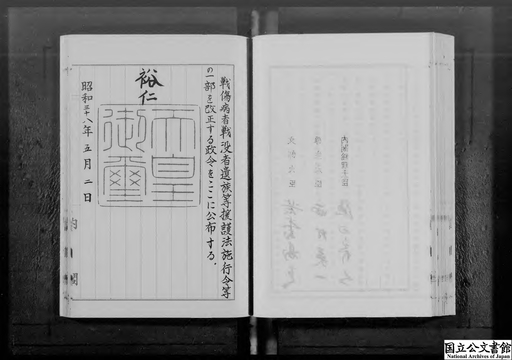 戦傷病者戦没者遺族等援護法施行令等
の一部を改正する政令をここに公布する。
裕仁
天皇
御璽
昭和三十八年五月二日
内閣
国立公文書館
National Archives of Japan